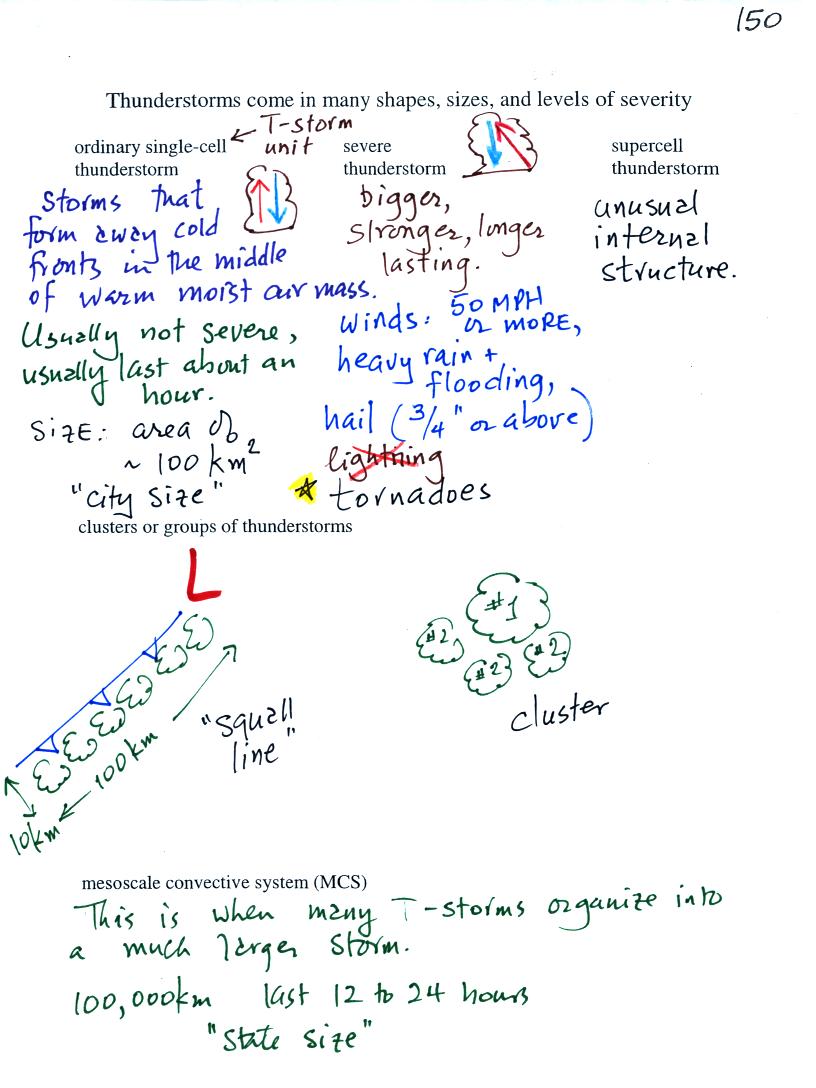 150
Thunderstorms come in many shapes, sizes, and levels of severity
ordinary single-cell
thunderstorm
T-storm
unit
severe
thunderstorm
supercell
thunderstorm
Storms that
form away cold
fronts in the middle
of warm moist air mass.
Usually not severe,
usually last about an
hour.
SIZE: area of
~ 100 km²
"city size"
bigger,
stronger, longer
lasting.
winds: 50 MPH
or MORE,
heavy rain +
flooding,
hail (3/4" or above)
lightning
tornadoes
unusual
internal
structure.
clusters or groups of thunderstorms
L
"squall
line"
100km
10km
#1
#2
#2
#2
cluster
mesoscale convective system (MCS)
This is when many T-storms organize into
a much larger storm.
100,000km last 12 to 24 hours
"state size"